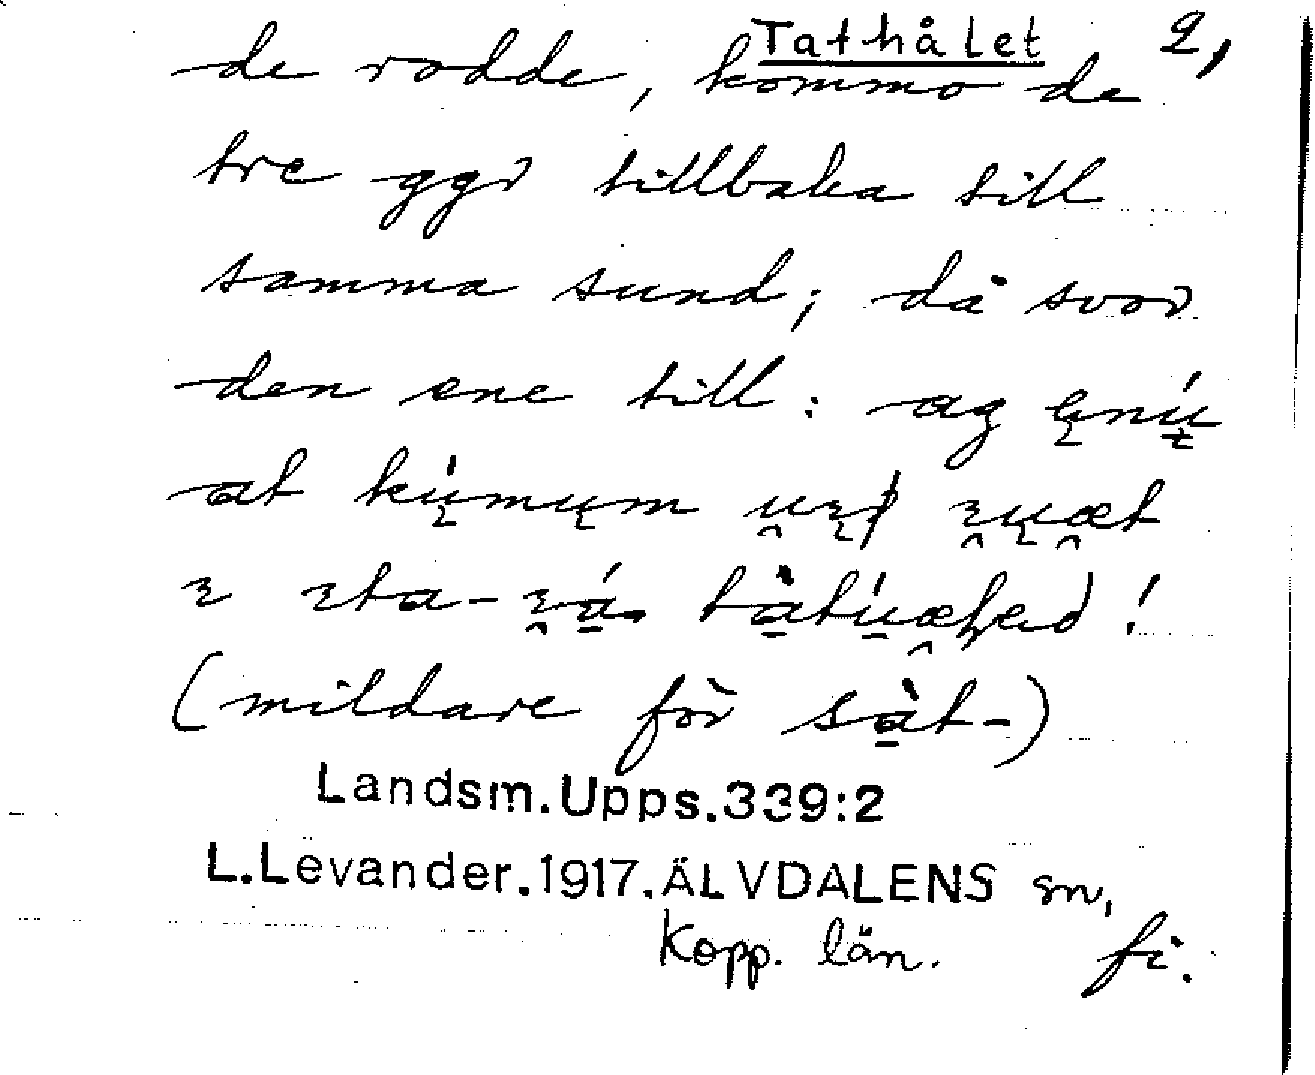 Tathålet 2,
de rodde, kommo de
tre ggr tillbaka till
samma sund; då svor
den ene till: ag
at
(mildare för såt-)
Landsm.Upps.339:2
L.Levander.1917.ÄLVDALENS sn,
Kopp. län. fi.